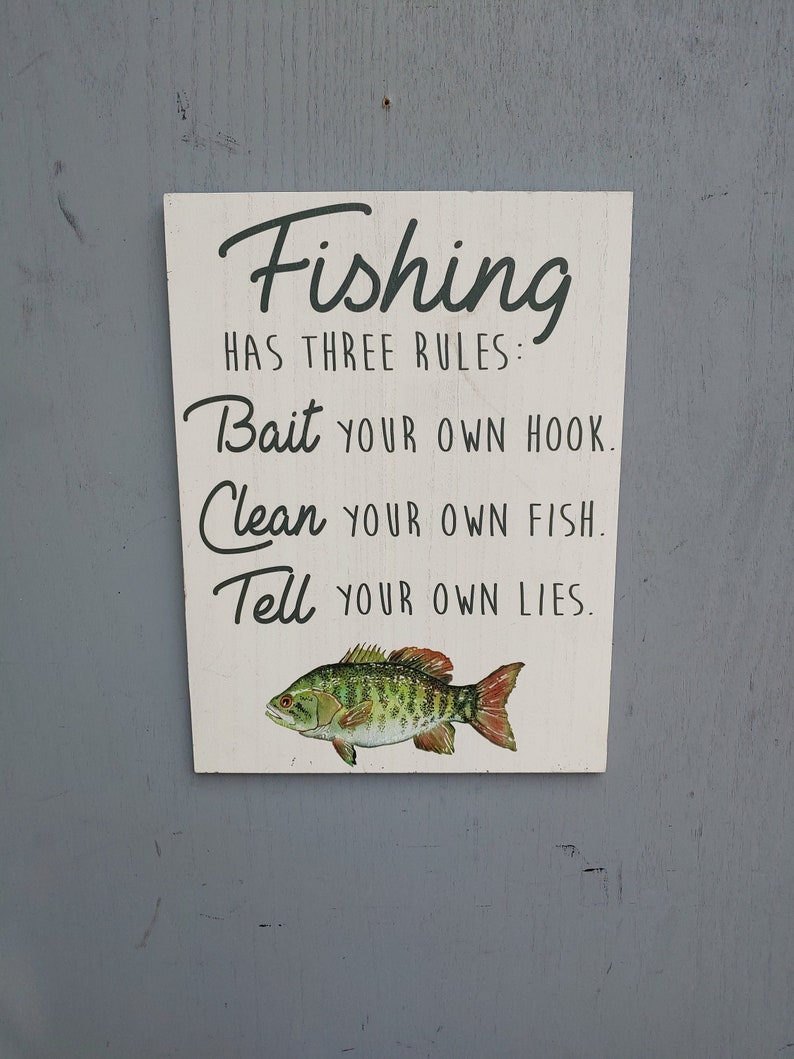 Fishing
HAS THREE RULES:
Bait YOUR OWN HOOK.
Clean YOUR OWN FISH.
Tell YOUR OWN LIES.